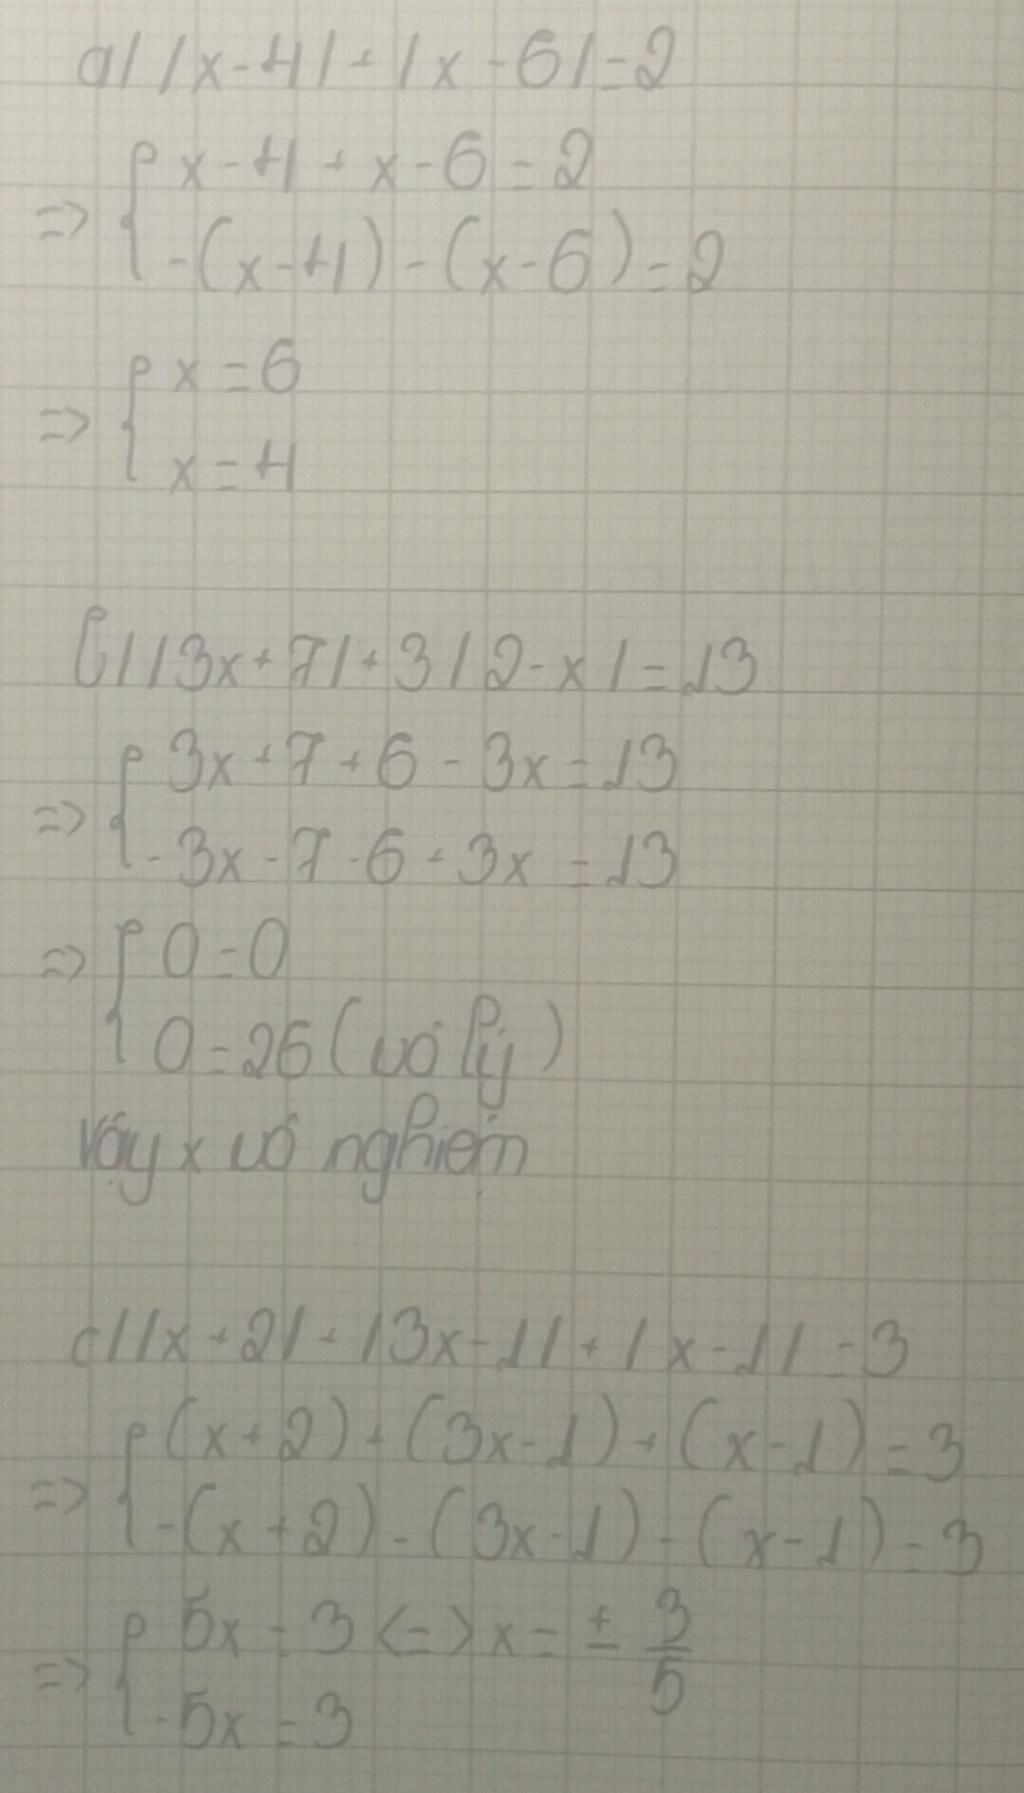 a/ |x-4| + |x-6| = 2
=> { x-4 + x-6 = 2
-(x-4) - (x-6) = 2
=> { x = 6
x = 4
b/ |3x+7| + 3|2-x| = 13
=> { 3x+7+6-3x = 13
-3x-7-6+3x = 13
=> { 0 = 0
0 = 26 (vô lý)
vậy x vô nghiệm
c/ |x+2| + |3x-1| + |x-1| = 3
=> { (x+2) + (3x-1) + (x-1) = 3
-(x+2) - (3x-1) - (x-1) = 3
=> { 5x = 3 <=> x = ± 3/5
-5x = 3